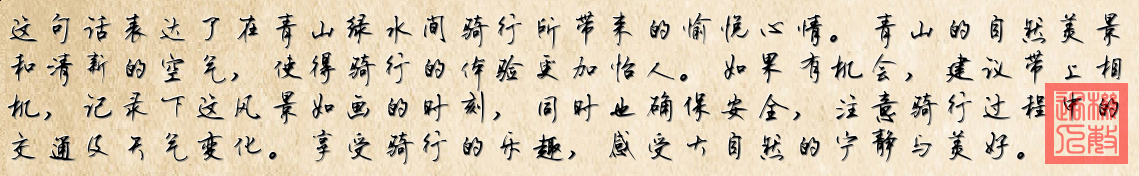 这句话表达了在青山绿水间骑行所带来的愉悦心情。青山的自然美景
和清新的空气，使得骑行的体验更加怡人。如果有机会，建议带上相
机，记录下这风景如画的时刻，同时也确保安全，注意骑行过程中的
交通及天气变化。享受骑行的乐趣，感受大自然的宁静与美好。